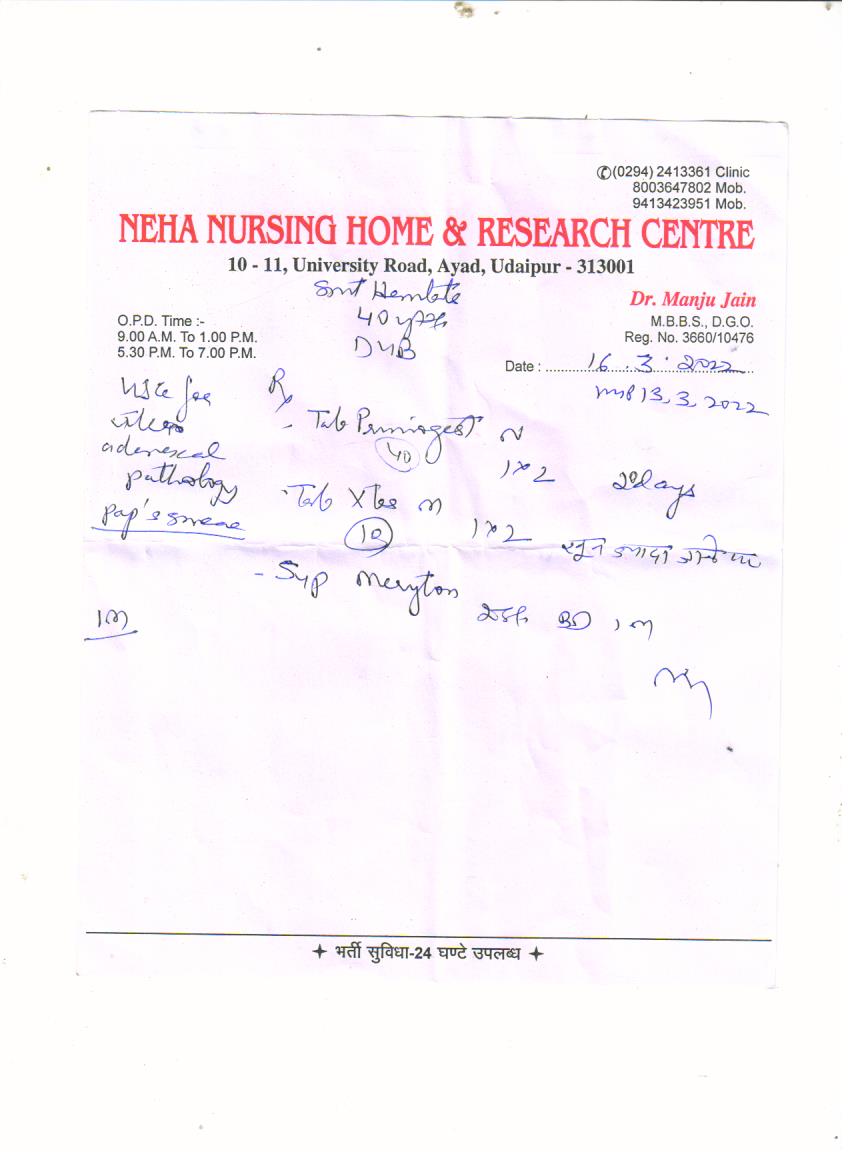 ✆(0294) 2413361 Clinic
8003647802 Mob.
9413423951 Mob.
NEHA NURSING HOME & RESEARCH CENTRE
10 - 11, University Road, Ayad, Udaipur - 313001
Smt Hemlata
Dr. Manju Jain
40 yrs
M.B.B.S., D.G.O.
Reg. No. 3660/10476
O.P.D. Time :-
9.00 A.M. To 1.00 P.M.
5.30 P.M. To 7.00 P.M.
DUB
Date : 16.3.2022
13.3.2022
USG for
Rx
- Tab
40
1x2 20 days
adenexal
pathology
pap's smear
Tab
10
1x2 खून ज्यादा आने पर
- Syp
BD 1m
1m
भर्ती सुविधा-24 घण्टे उपलब्ध